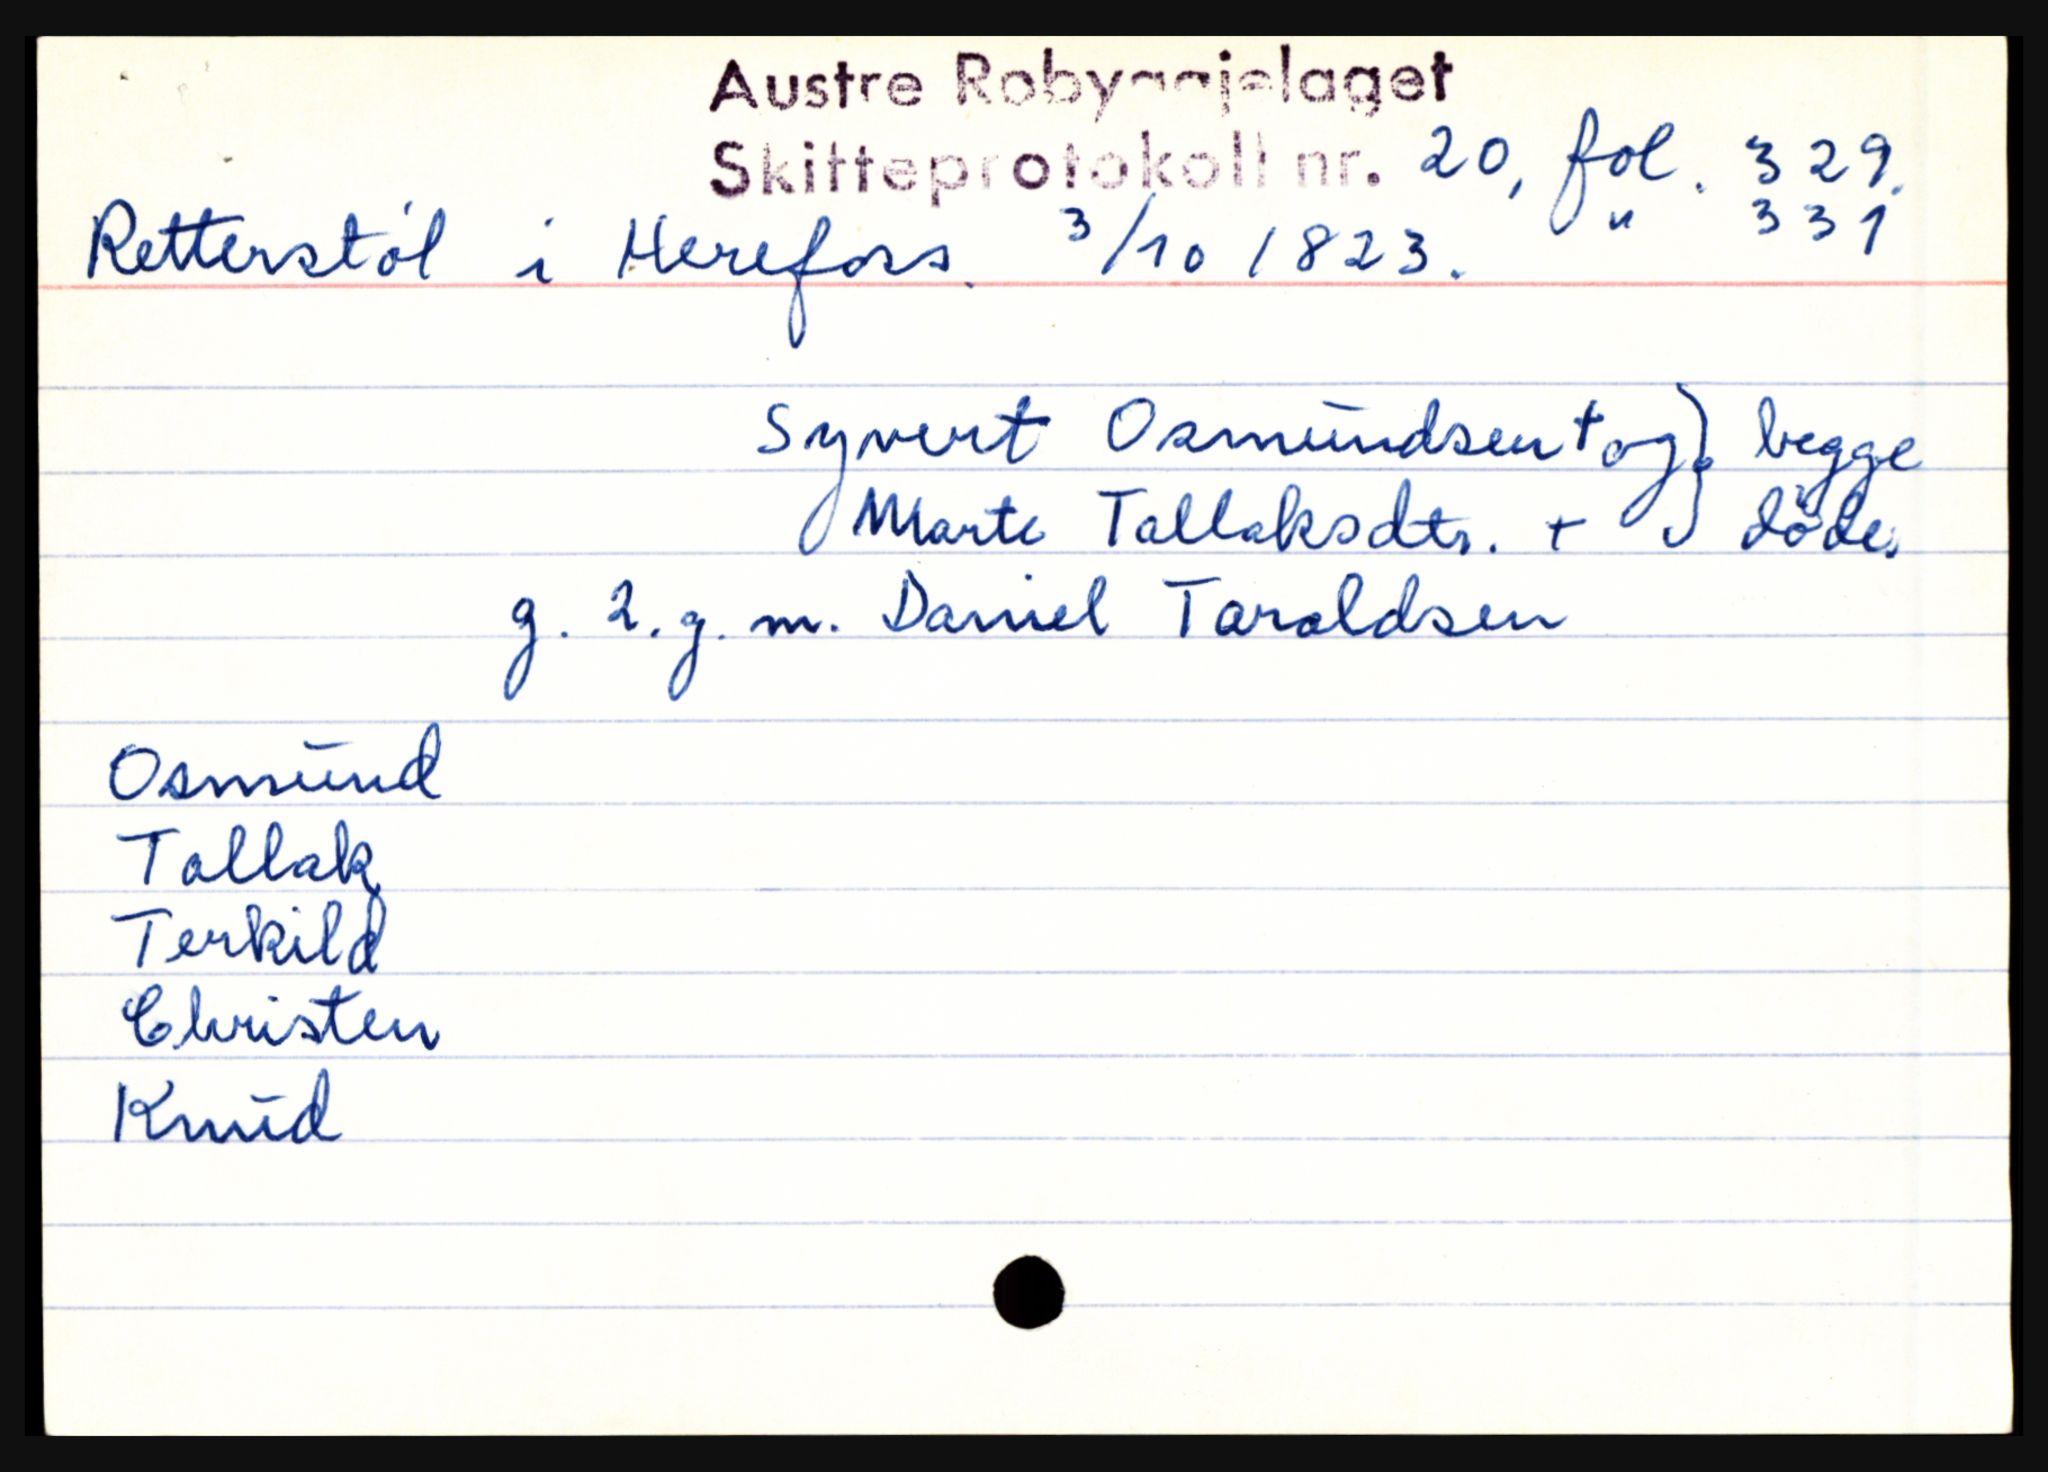 Austre Robyggjelaget
Skifteprotokoll nr. 20, fol. 329.
" 331
Retterstøl i Herefoss. 3/10 1823.
Syvert Osmundsen + og } begge
Marte Tallaksdtr. + døde.
g. 2. g. m. Daniel Taraldsen
Osmund
Tallak
Terkild
Christen
Knud